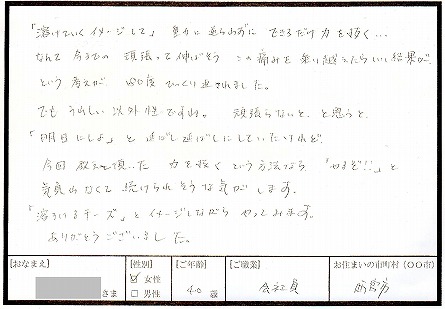 「溶けていくイメージして」重力に逆らわずに できるだけ力を抜く…
なんて 今までの 頑張って伸ばそう この痛みを乗り越えたらいい結果が、
という考えが、180度 ひっくり返されました。
でも うれしい以外性ですね。 頑張らないと、と思うと
「明日にしよ」と 延ばし延ばしにしていたけれど
今回 教えて頂いた 力を抜くという方法なら 「やるぞ!!」と
気負わなくて 続けられそうな気がします。
「溶けいるチーズ」とイメージしながら やってみます。
ありがとうございました。
【おなまえ】 【性別】 【ご年齢】 【ご職業】 お住まいの市町村（〇〇市）
さま ☑ 女性 □ 男性 40 歳 会社員